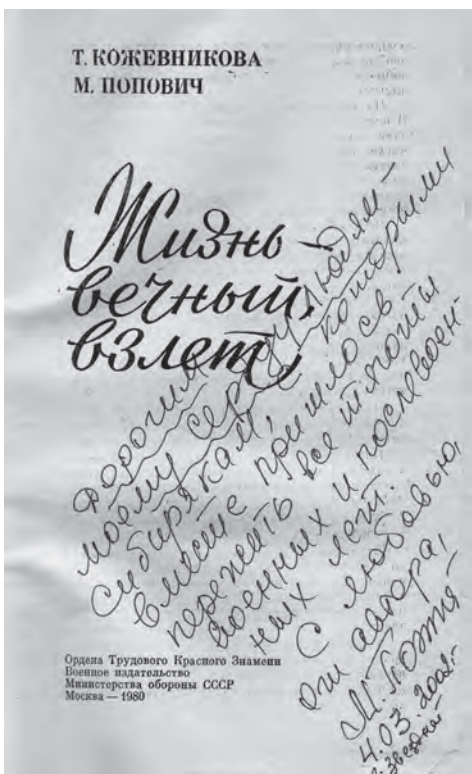 Т. КОЖЕВНИКОВА
М. ПОПОВИЧ
Жизнь —
вечный
взлет
Дорогим
моему сердцу людям —
сибирякам, с которыми
вместе пришлось
пережить все тяготы
военных и послевоен-
ных лет.
С любовью,
от автора,
М. Попович
4.03.2002г.
Звездный
Ордена Трудового Красного Знамени
Военное издательство
Министерства обороны СССР
Москва — 1980